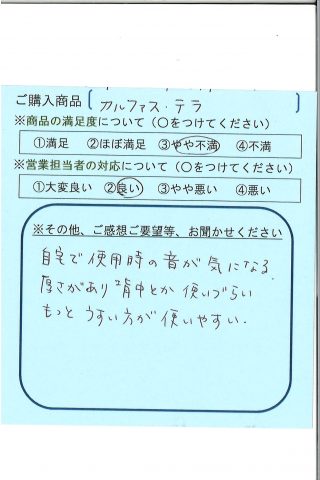 ご購入商品 カルファス・テラ
※商品の満足度について（○をつけてください）
①満足 ②ほぼ満足 ③やや不満 ④不満
※営業担当者の対応について（○をつけてください）
①大変良い ②良い ③やや悪い ④悪い
※その他、ご感想ご要望等、お聞かせください
自宅で使用時の音が気になる
厚さがあり背中とか使いづらい
もっとうすい方が使いやすい.